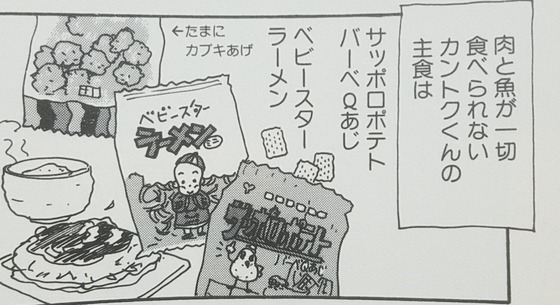 肉と魚が一切
食べられない
カントクくんの
主食は
サッポロポテト
バーベQあじ
ベビースター
ラーメン
←たまに
カブキあげ
ベビースター
ラーメン
ミニ
サッポロポテト
バーベQあじ